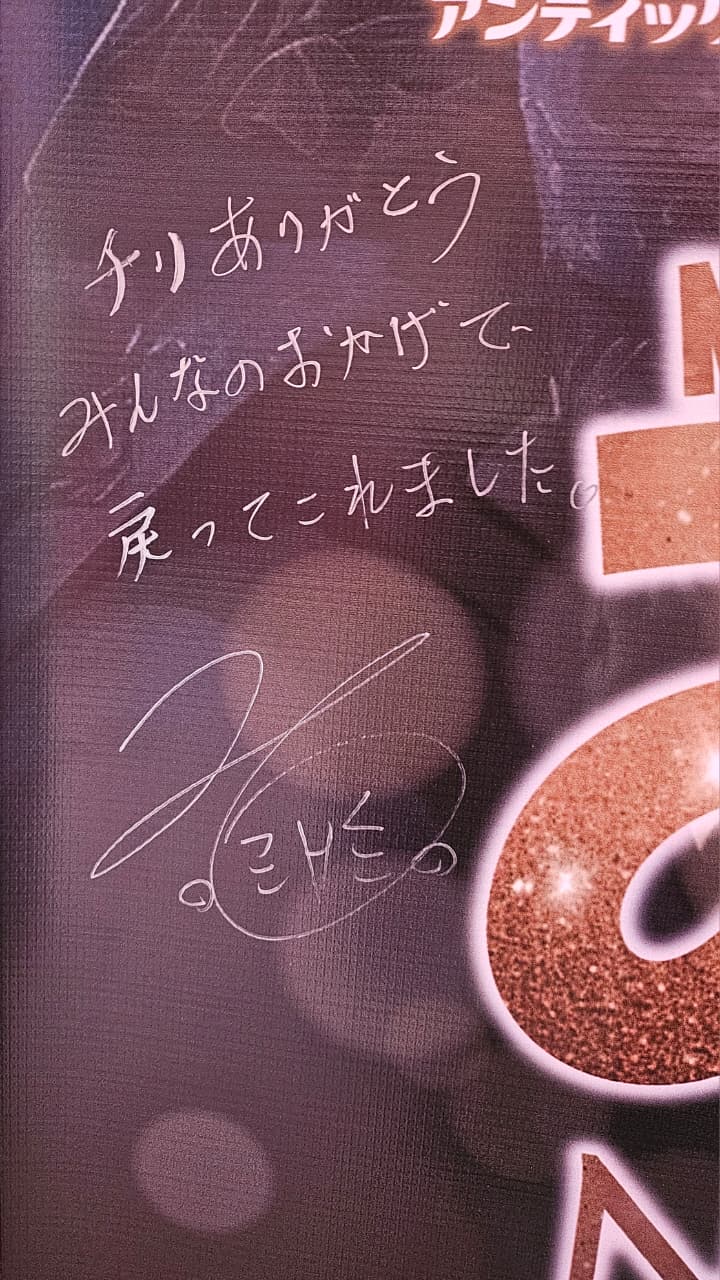 アンティック
チリありがとう
みんなのおかげで
戻ってこれました。